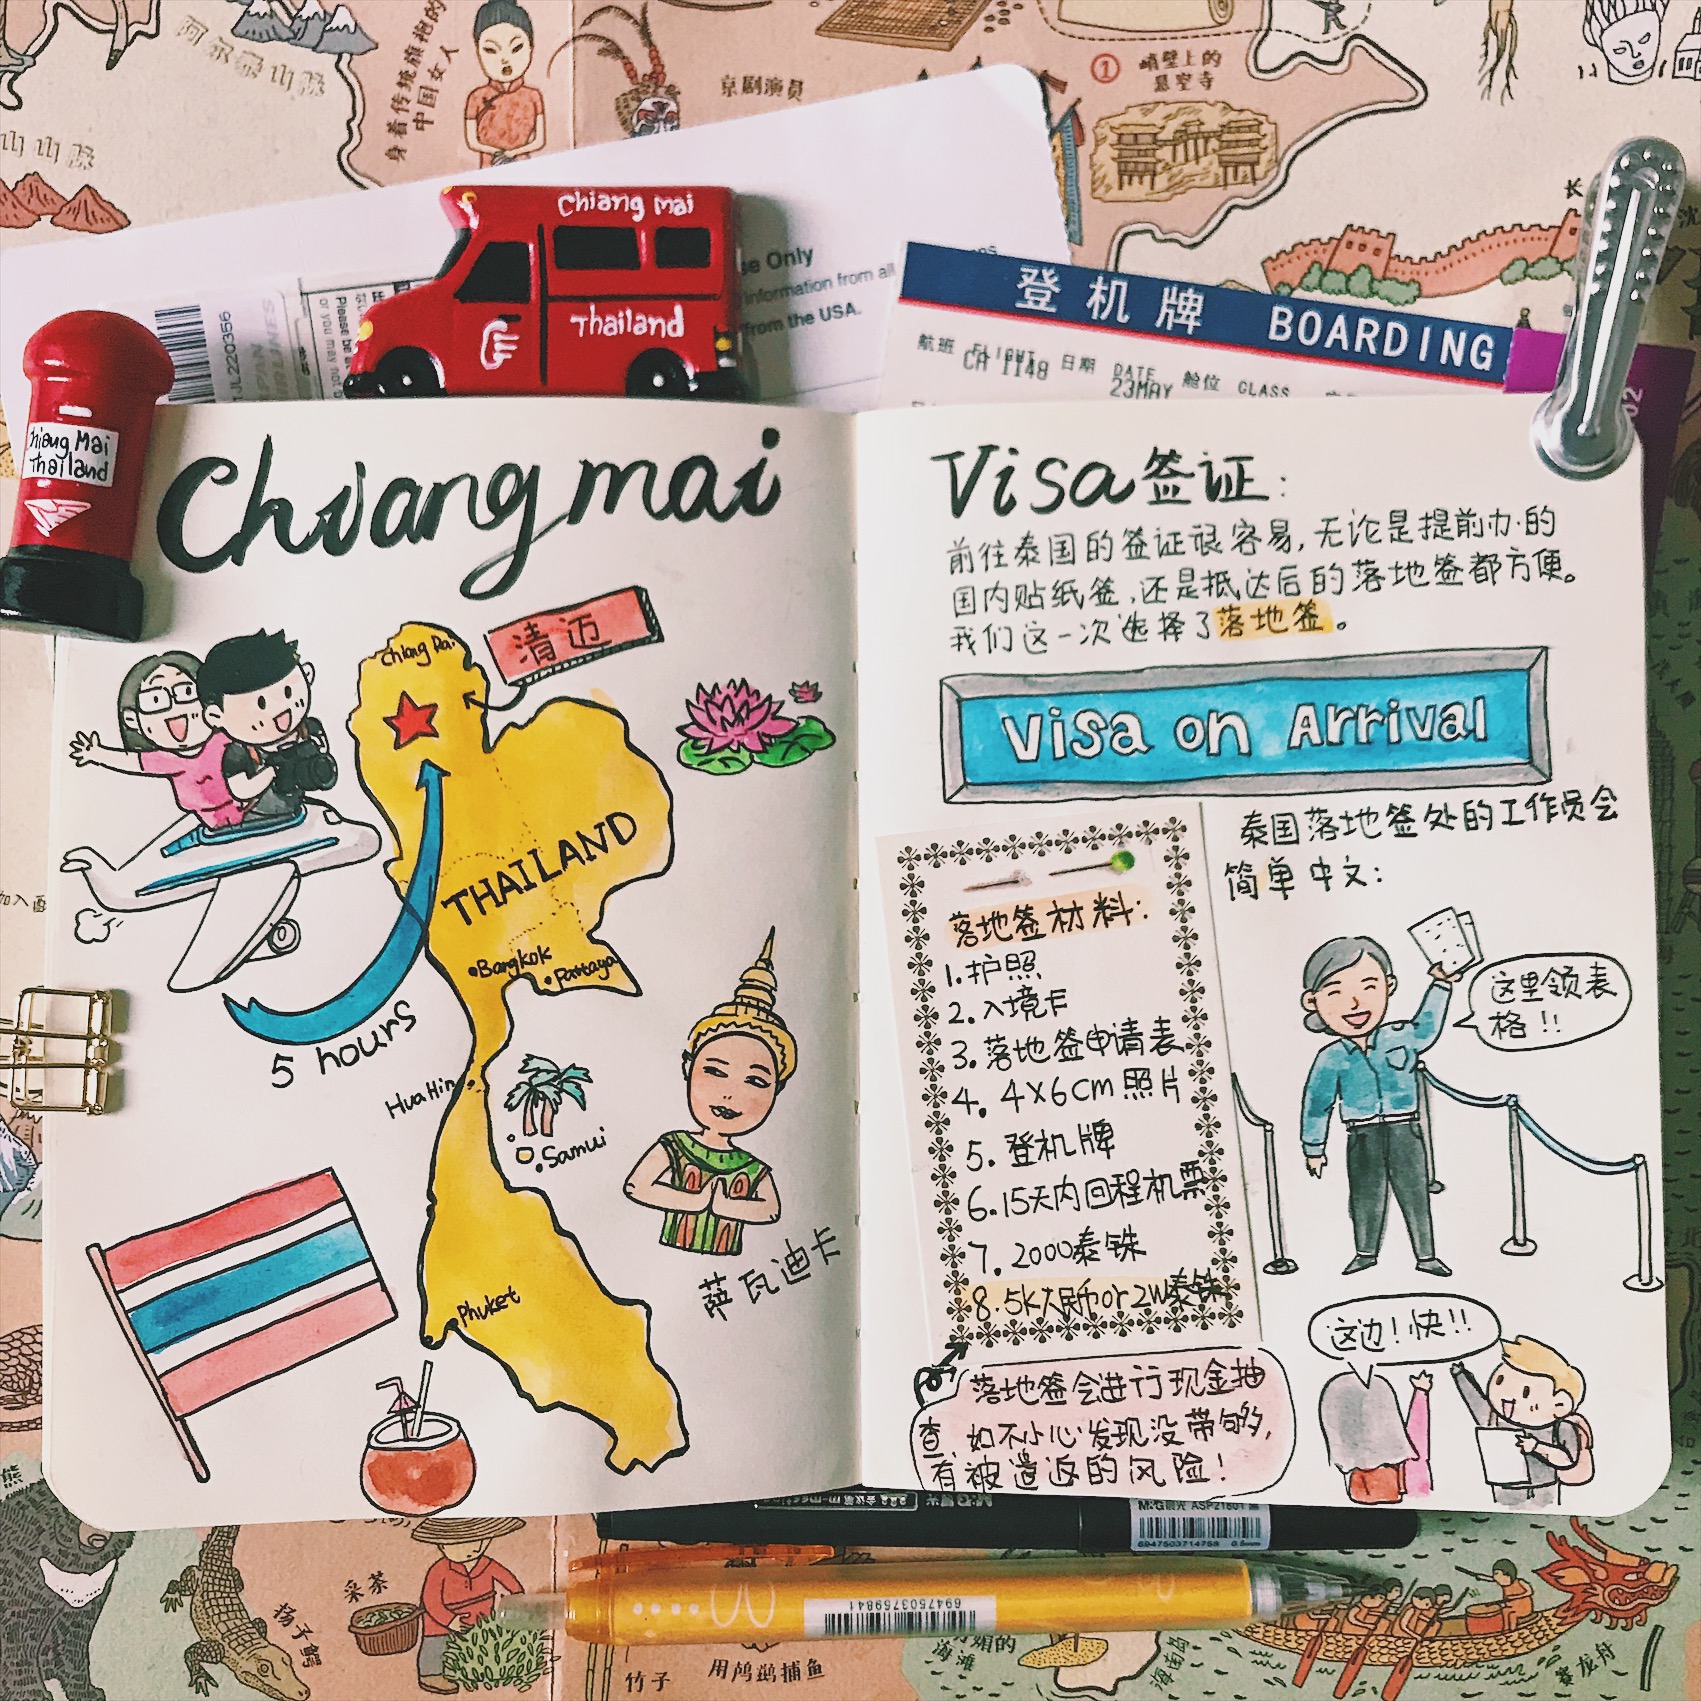 阿尔泰山脉
身着传统旗袍的
中国女人
京剧演员
1
峭壁上的
悬空寺
山山脉
长
Chiang Mai
Thailand
se Only
information from all
from the USA.
JL220356
登机牌 BOARDING
航班 FLIGHT 日期 DATE 舱位 CLASS
CA 1148 23MAY
Chiang Mai
Thailand
Chiang mai
清迈
Chiang Rai
THAILAND
Bangkok
Pattaya
5 hours
Hua Hin
Samui
萨瓦迪卡
Phuket
Visa签证:
前往泰国的签证很容易,无论是提前办的
国内贴纸签,还是抵达后的落地签都方便。
我们这一次选择了落地签。
Visa on Arrival
泰国落地签处的工作员会
简单中文:
落地签材料:
1.护照
2.入境卡
3.落地签申请表
4. 4×6cm照片
5.登机牌
6.15天内回程机票
7. 2000泰铢
8.5K人民币or 2W泰铢
落地签会进行现金抽
查,如不小心发现没带够,
有被遣返的风险!
这里领表
格!!
这边!快!!
M&G晨光 ASPZ1601
6947503714758 0.5mm
6947503759841
熊
扬子鳄
采茶
竹子
用鸬鹚捕鱼
海滩
海南岛
赛龙舟